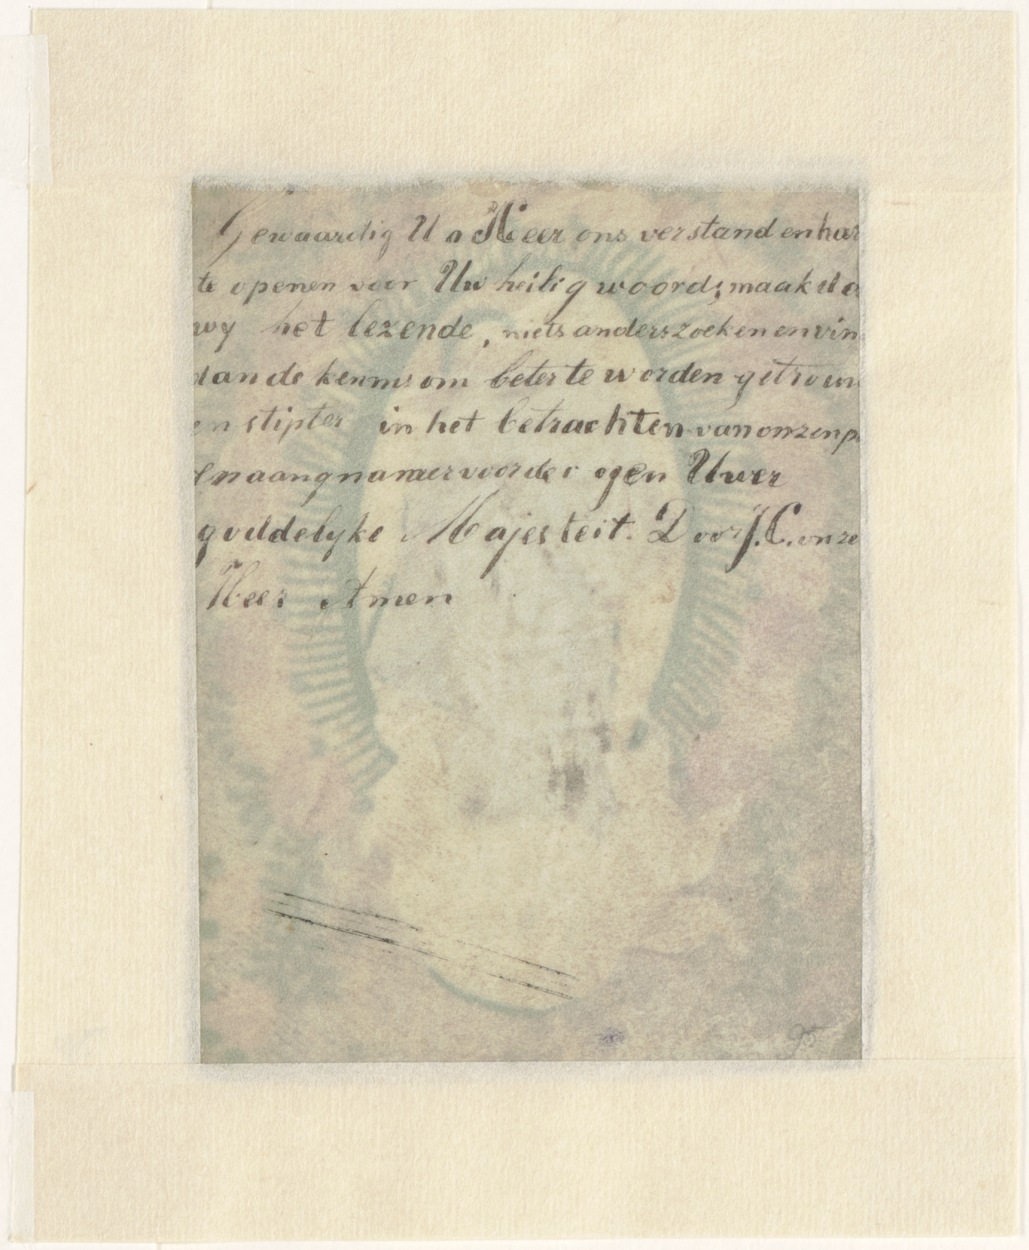 Gewaardig U o Heer ons verstand en har
te openen voor Uw heilig woord; maak da
wy het lezende, niets anders zoeken en vin
dan de kennis om beter te worden getrouw
en stipter in het betrachten van onzen p
en aangnamer voor de ogen Uwer
goddelyke Majesteit. Door J.C. onze
Heer Amen
95